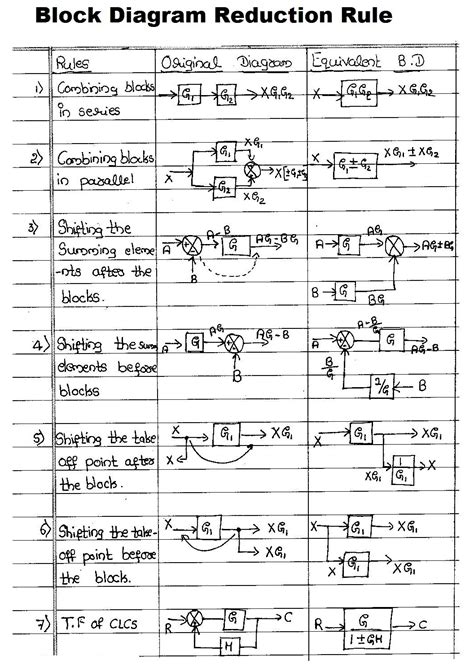 Block Diagram Reduction Rule
Rules Original Diagram Equivalent B.D
1) Combining blocks in series
X G1 G2 XG1G2
X G1G2 XG1G2
2) Combining blocks in parallel
X G1 G2 XG1 XG2
X G1 ± G2 XG1 ± XG2
3) Shifting the Summing eleme-nts after the blocks.
A A-B G AG-BG B
A G AG AG±BG
B G BG
4) Shifting the sum elements before blocks
A G AG AG-B B
A A-B/G G AG-B
B/G 1/G B
5) Shifting the take off point after the block.
X G1 XG1
X
X G1 XG1
XG1 1/G1 X
6) Shifting the take-off point before the block.
X G1 XG1
XG1
X G1 XG1
X G1 XG1
7) T.F of CLCS
R G C
H
R G/1±GH C